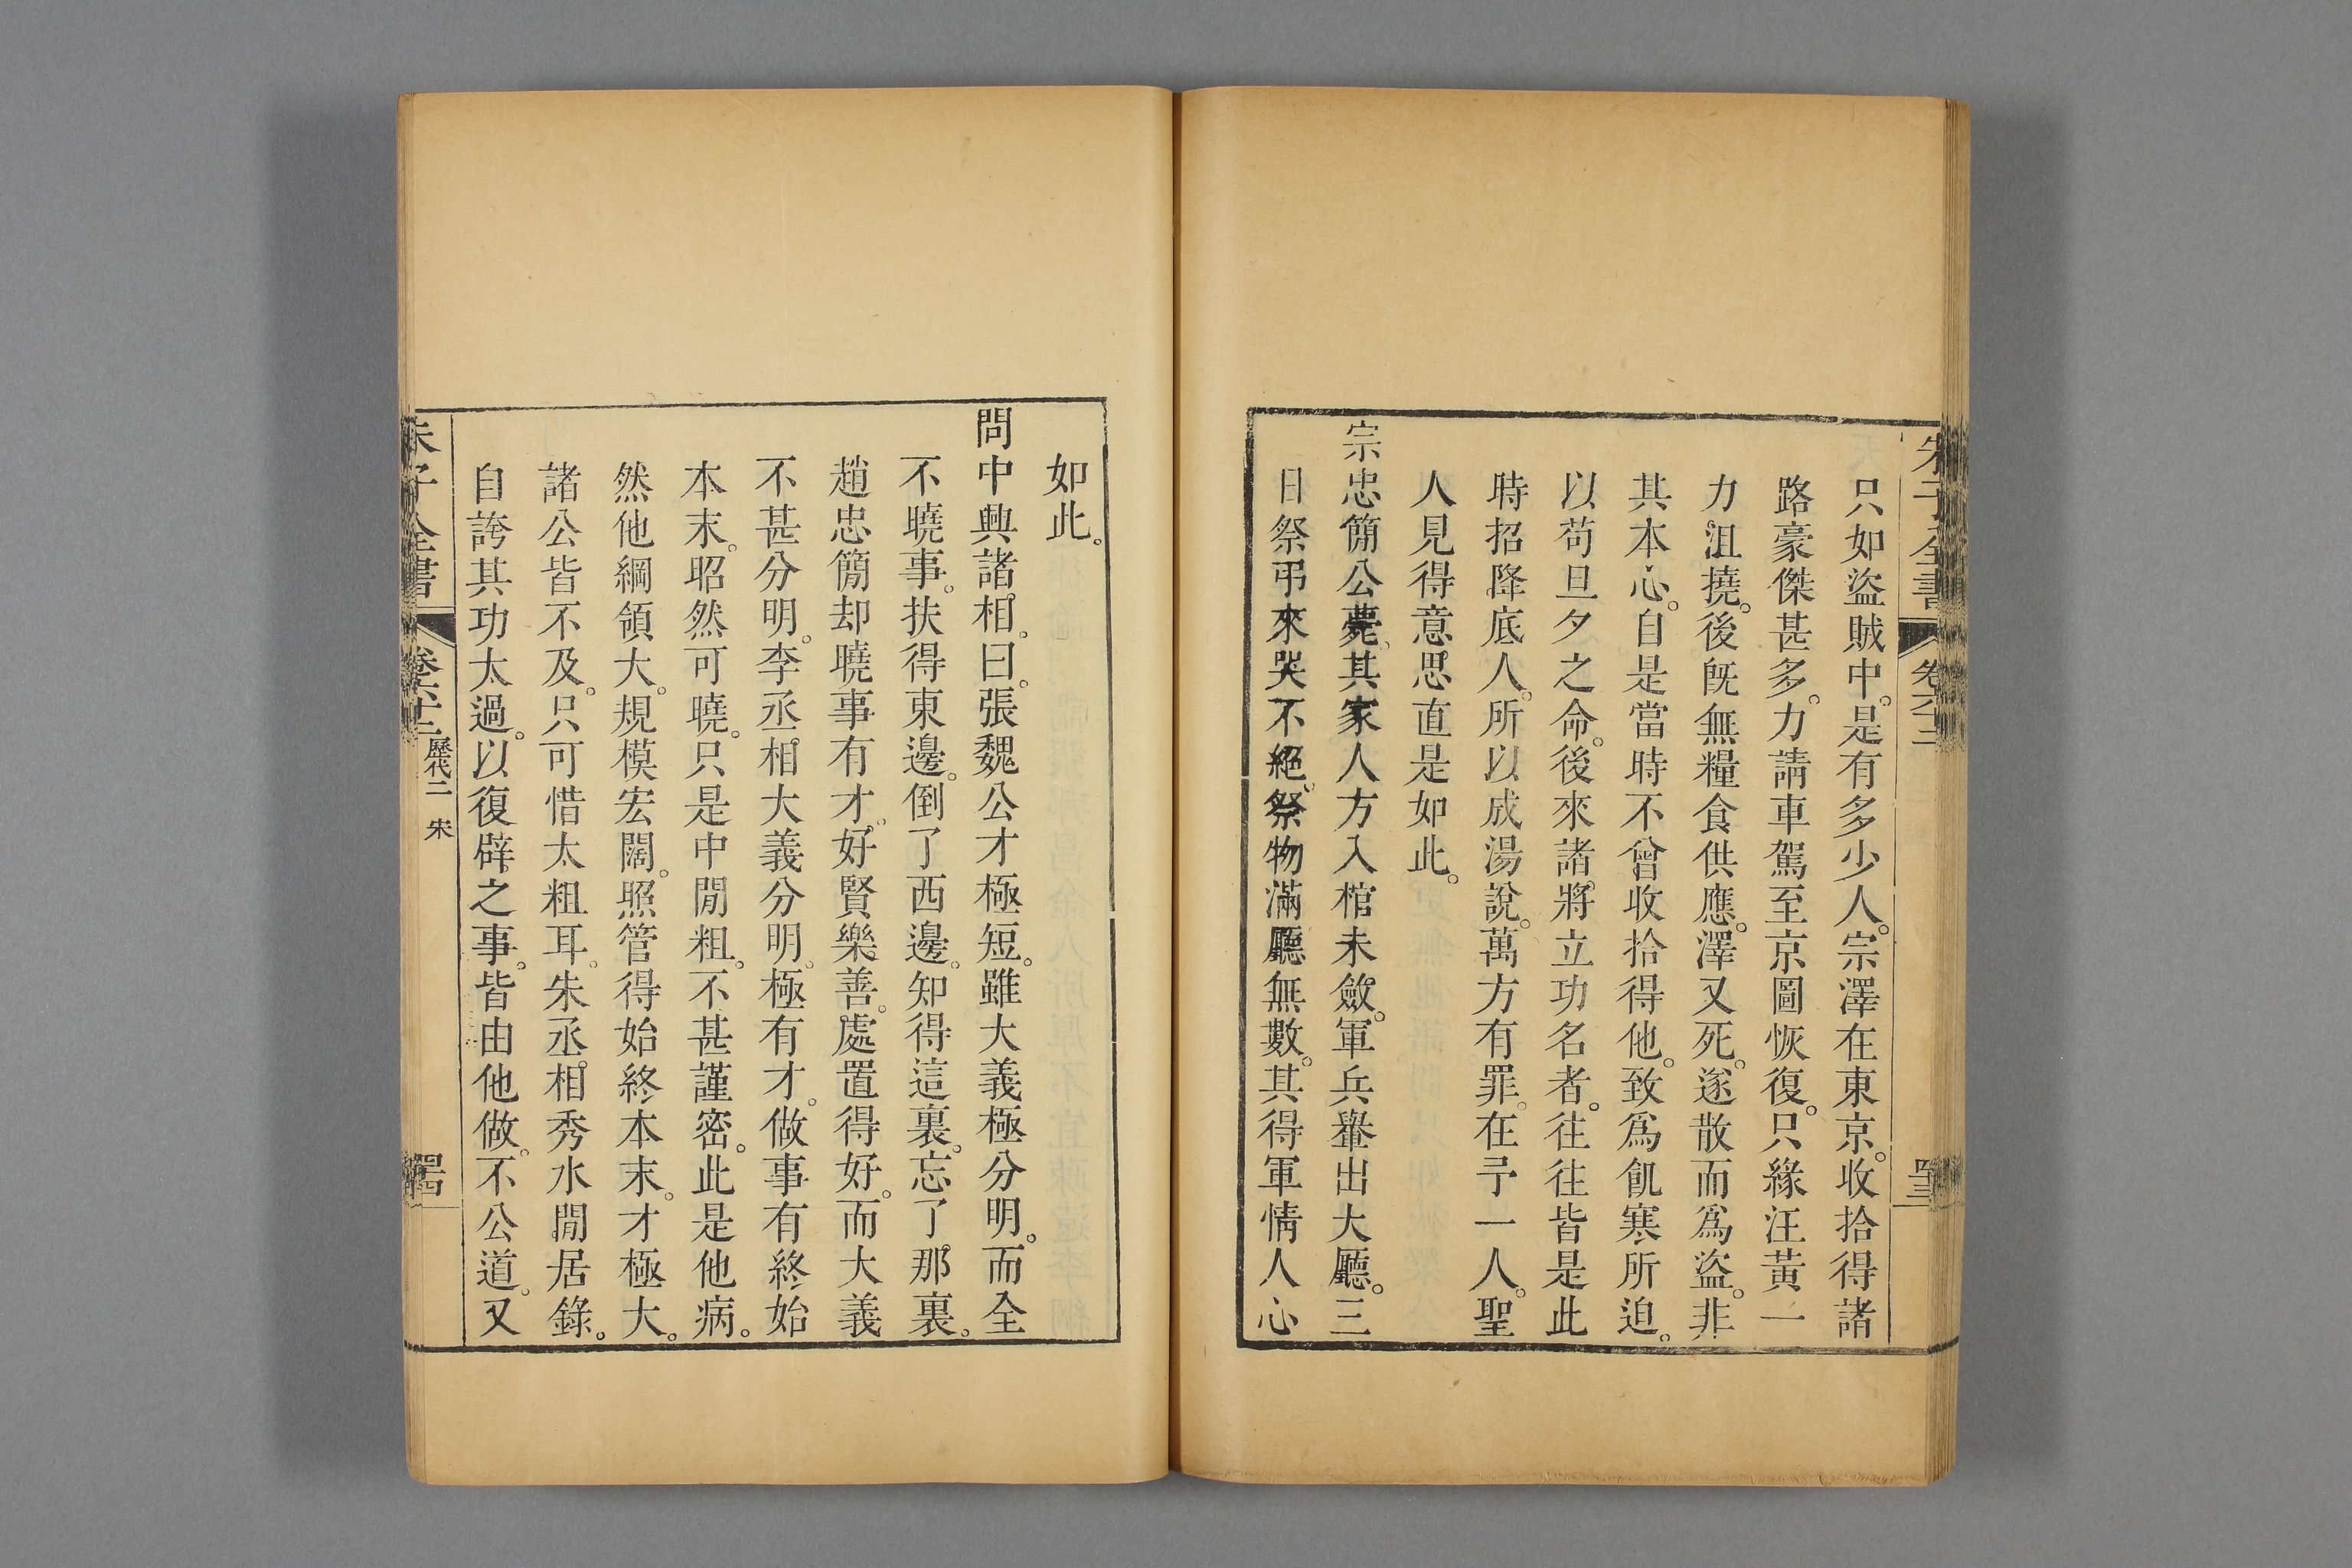 朱子全書 卷六十二 四十三
只如盜賊中。是有多少人。宗澤在東京。收拾得諸
路豪傑甚多。力請車駕至京圖恢復。只緣汪黃一
力沮撓。後旣無糧食供應。澤又死。遂散而爲盜。非
其本心。自是當時不曾收拾得他。致爲飢寒所迫。
以苟旦夕之命。後來諸將立功名者。往往皆是此
時招降底人。所以成湯說。萬方有罪。在予一人。聖
人見得意思直是如此。
宗忠簡公薨。其家人方入棺未斂。軍兵轝出大廳。三
日祭弔來哭不絕。祭物滿廳無數。其得軍情人心
如此。
問中興諸相。曰。張魏公才極短。雖大義極分明。而全
不曉事。扶得東邊。倒了西邊。知得這裏。忘了那裏。
趙忠簡却曉事有才。好賢樂善。處置得好。而大義
不甚分明。李丞相大義分明。極有才。做事有終始
本末。昭然可曉。只是中閒粗。不甚謹密。此是他病。
然他綱領大。規模宏闊。照管得始終本末。才極大。
諸公皆不及。只可惜太粗耳。朱丞相秀水閒居錄。
自誇其功太過。以復辟之事。皆由他做。不公道。又
朱子全書 卷六十二 歷代二 宋 四十四